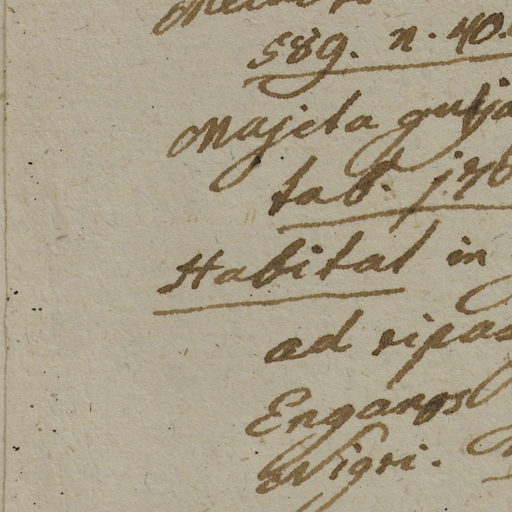 589. n. 40.
Majeta
tab.
Habital in
ad ripas
Engaros
Nigri.